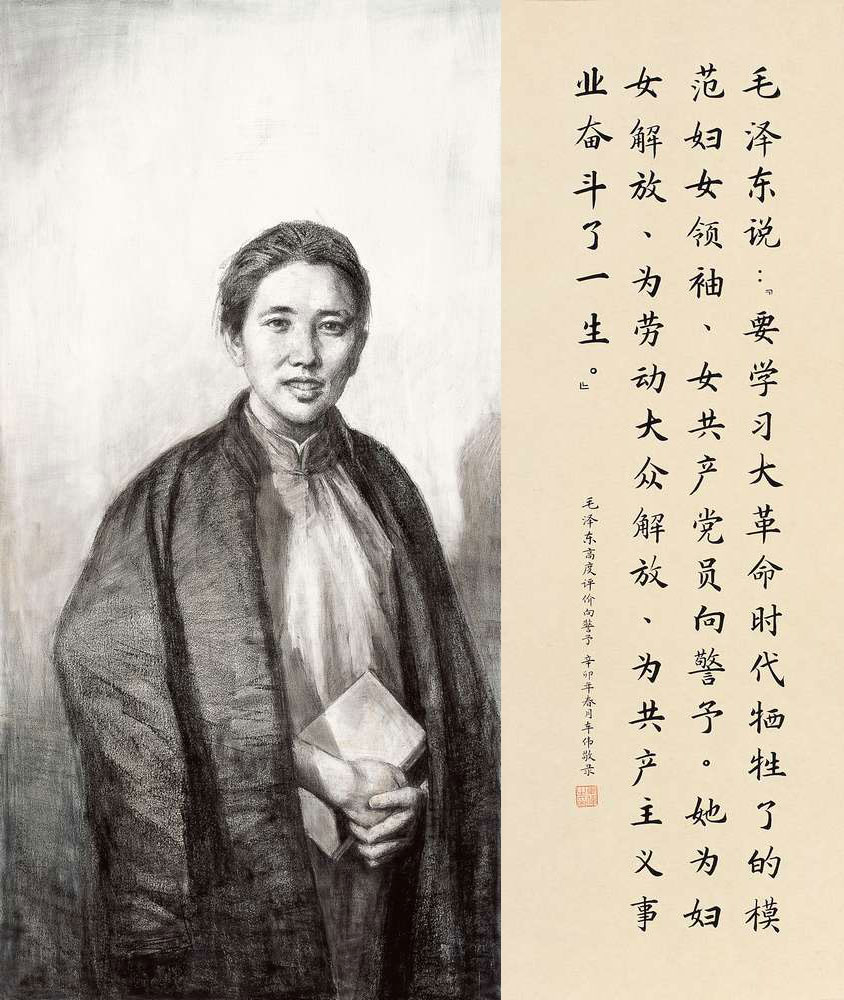 毛泽东说：『要学习大革命时代牺牲了的模
范妇女领袖、女共产党员向警予。她为妇
女解放、为劳动大众解放、为共产主义事
业奋斗了一生。』
毛泽东高度评价向警予 辛卯年春月车伟敬录